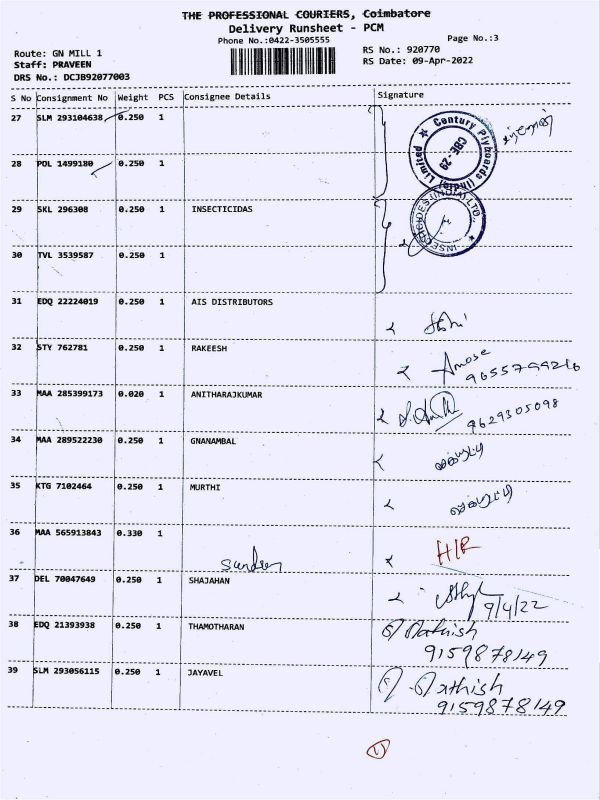 THE PROFESSIONAL COURIERS, Coimbatore
Delivery Runsheet - PCM
Phone No.:0422-3505555
Page No.:3
Route: GN MILL 1
RS No.: 920770
Staff: PRAVEEN
RS Date: 09-Apr-2022
DRS No.: DCJB92077003
S No Consignment No Weight PCS Consignee Details Signature
27 SLM 293104638 0.250 1
Century Plyboards (India) Limited
CBE-29
28 POL 1499180 0.250 1
29 SKL 296308 0.250 1 INSECTICIDAS
INSECTICIDES (INDIA) LTD.
30 TVL 3539587 0.250 1
31 EDQ 22224019 0.250 1 AIS DISTRIBUTORS
32 STY 762781 0.250 1 RAKEESH
Amose
9655799216
33 MAA 285399173 0.020 1 ANITHARAJKUMAR
9629305098
34 MAA 289522230 0.250 1 GNANAMBAL
35 KTG 7102464 0.250 1 MURTHI
36 MAA 565913843 0.330 1
37 DEL 70047649 0.250 1 SHAJAHAN
9/4/22
38 EDQ 21393938 0.250 1 THAMOTHARAN
9159878149
39 SLM 293056115 0.250 1 JAYAVEL
9159878149